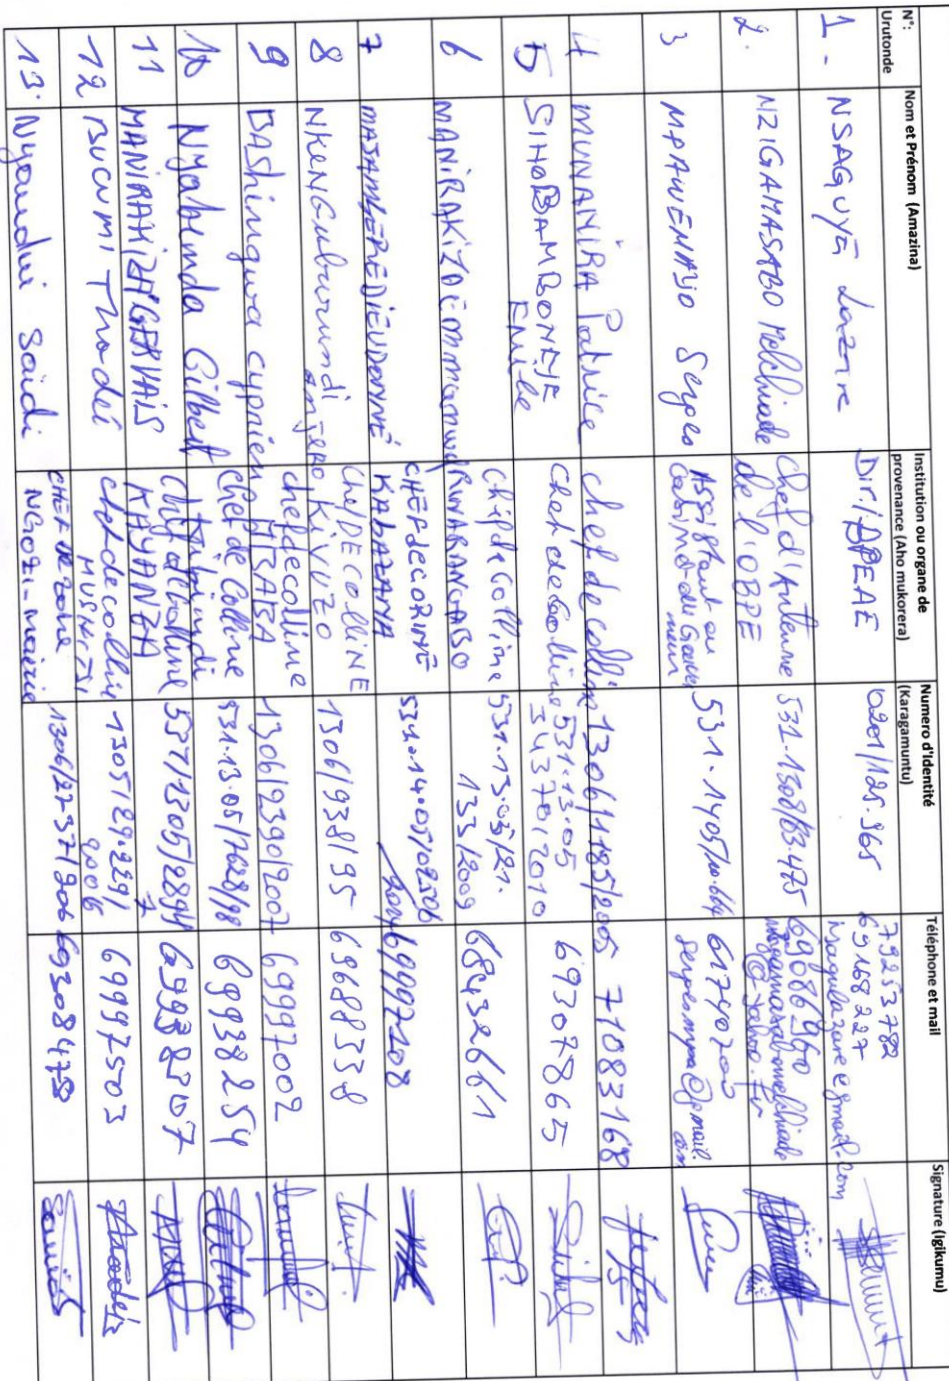 N°: Urutonde
Nom et Prénom (Amazina)
Institution ou organe de provenance (Aho mukorera)
Numero d'Identité (Karagamuntu)
Téléphone et mail
Signature (Igikumu)
1- NSAGUYE Lazare DIR/DPEAE 0201/125.965 79253782
69168227
nsagulazare@gmail.com
2. NZIGAMASABO Melchiade Chef d'Antenne
de l'OBPE 531.1308/83.475 69086960
@yahoo.fr
3 MPAWENAYO Serges Assistant au
531.1405/ 61740700
sergesmpa@gmail.com
4 MUNANIRA Patrice chef de colline 1306/1185/2005 71083168
5 SIHOBAMBONEJE
EMILE Chef de Colline 531.13.05
3437012010 69307865
6 MANIRAKIZA Emmanuel Chef de Colline
RWABANGABO 531.13.05/21.
133/2009 68432661
7 MAJAMBERE DIEUDONNÉ CHEF DE COLINE
531.14.05/02506
69997208
8 NKENGuburundi Chef DE COLLINE
KIVUZO 1306/938/95 69688338
9 BAShingwa cyprien chef de colline
1306/2390/2007 69997002
10 Nyabenda Gilbert Chef de Colline
531.13.05/7628/98 69938254
11 MANIRAKIZA GERVAIS Chef de Colline
KAYANZA
12 BUCUMI Thadée chef de colline
1305/89.229/
2006 69997503
13. Nyandwi Saidi CHEF DE ZONE
NGOZI-mairie 1306/2237/2006 69308478